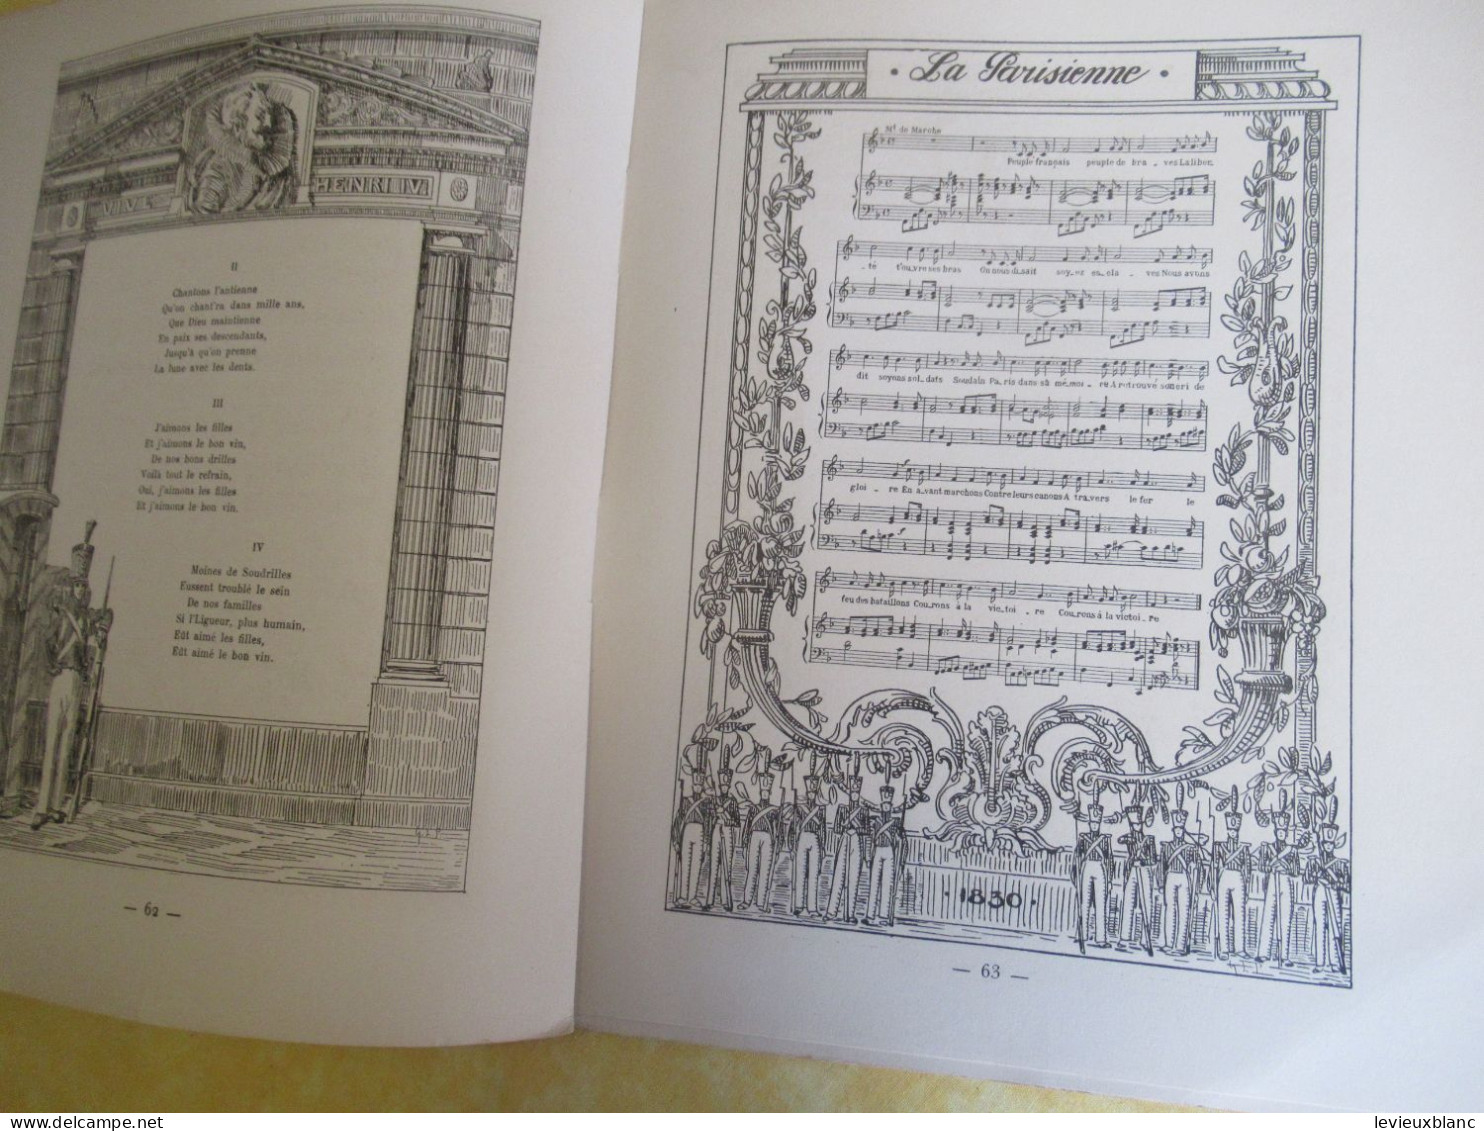 VIVE HENRI IV
II
Chantons l'antienne
Qu'on chant'ra dans mille ans,
Que Dieu maintienne
En paix ses descendants,
Jusqu'à qu'on prenne
La lune avec les dents.
III
J'aimons les filles
Et j'aimons le bon vin,
De nos bons drilles
Voilà tout le refrain,
Oui, j'aimons les filles
Et j'aimons le bon vin.
IV
Moines de Soudrilles
Eussent troublé le sein
De nos familles
Si l'Ligueur, plus humain,
Eût aimé les filles,
Eût aimé le bon vin.
— 62 —
· La Parisienne ·
Mt de Marche
Peuple français peuple de bra - ves La liber.
té t'ou.vre ses bras On nous di.sait soy.ez es.cla - ves Nous avons
dit soyons sol.dats Soudain Pa.ris dans sa mé.moi - re A retrouvé son cri de
gloi - re En a.vant marchons Contre leurs canons A tra.vers le fer le
feu des bataillons Cou.rons à la vic.toi - re Cou.rons à la victoi.re
· 1830 ·
— 63 —
levieuxblanc
delcampe.net